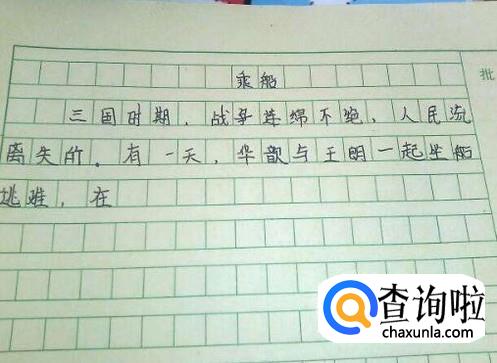 乘船
三国时期，战争连绵不绝，人民流
离失的。有一天，华歆与王明一起坐船
逃难，在
批
查询啦
chaxunla.com